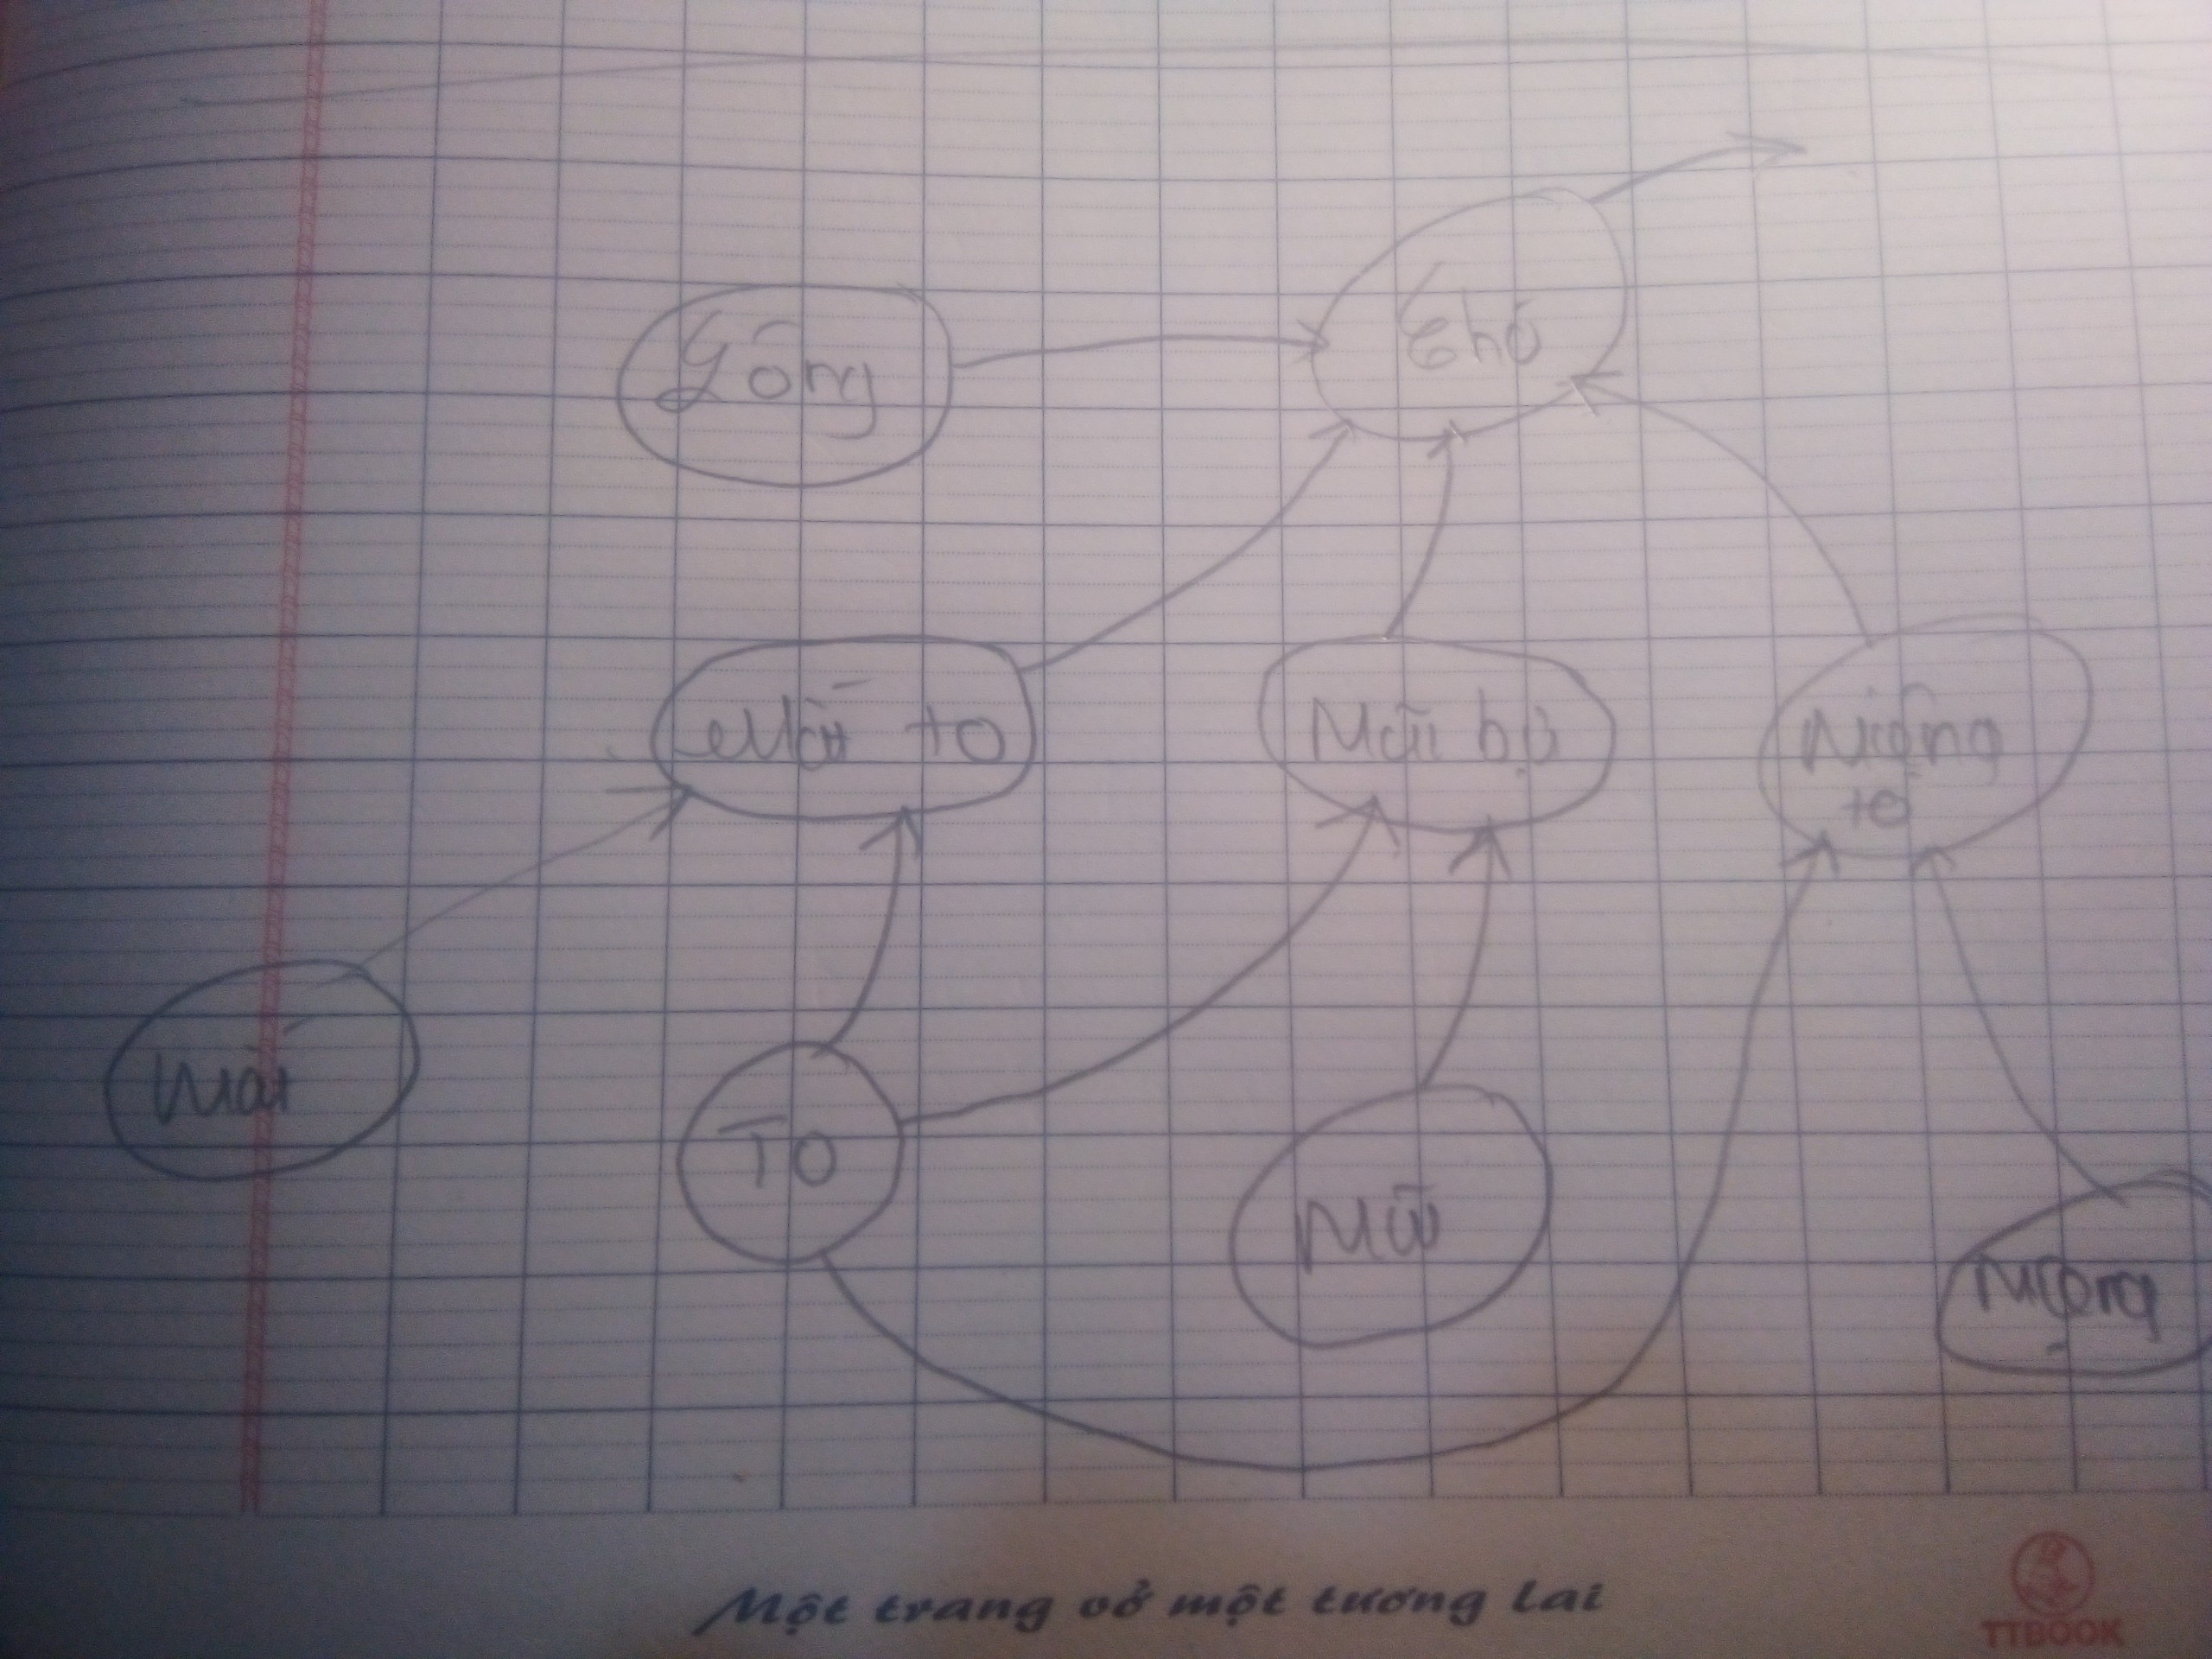 Lông
Chó
Mắt to
Mũi to
Miệng
to
Mắt
TO
Mũi
Miệng
Một trang vở một tương lai
TTBOOK